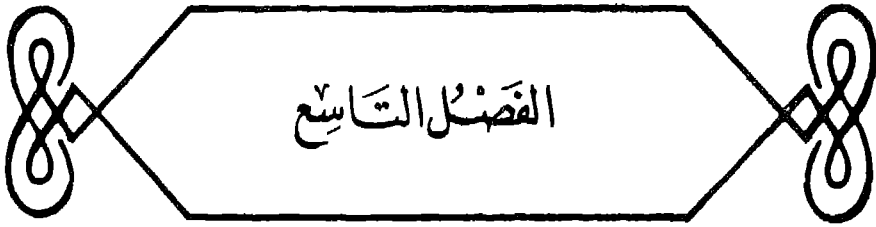 الفَصْلُ التَّاسِع